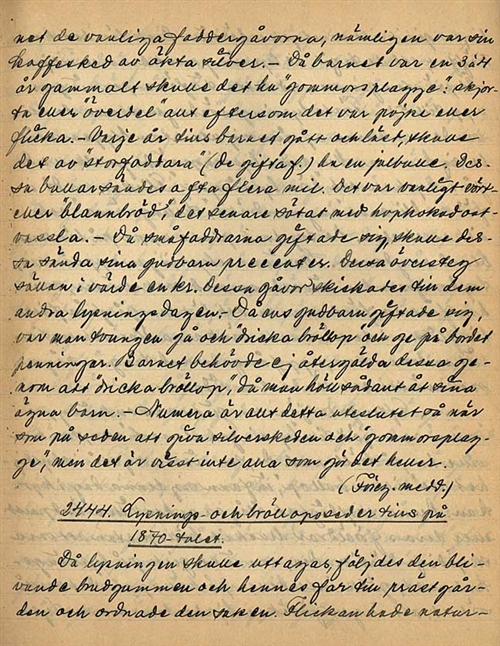 net de vanliga faddergåvorna, nämligen var sin
kaffesked av äkta silver. - Då barnet var en 3 à 4
år gammalt skulle det ha "gommorsplagge": skjor-
ta eller "överdel" allt eftersom det var pojke eller
flicka. - Varje år tills barnet gått och läst, skulle
det av "storfaddara" (de gifta f.) ha en julbulle. Des-
sa bullar sändes ofta flera mil. Det var vanligt vört-
eller "blannbröd", det senare sötat med hopkokad ost-
vassla. - Då småfaddrarna giftade sig, skulle des-
sa sända sina gudbarn presenter. Dessa översteg
sällan i värde en kr. Dessa gåvor skickades till dem
andra lysningsdagen. - Då ens gudbarn giftade sig,
var man tvungen gå och "dricka bröllop" och ge på bordet
penningar. Barnet behövde ej återgälda dessa ge-
nom att "dricka bröllop", då man höll sådant åt sina
egna barn. - Numera är allt detta uteslutet så när
som på seden att giva silverskeden och "gommorsplag-
ge", men det är visst inte alla som gör det heller.
(Föreg. medd.)
2444. Lysnings- och bröllopsseder tills på
1870-talet.
Då lysningen skulle uttagas, följdes den bli-
vande brudgummen och hennes far till prästgår-
den och ordnade den saken. Flickan hade natur-